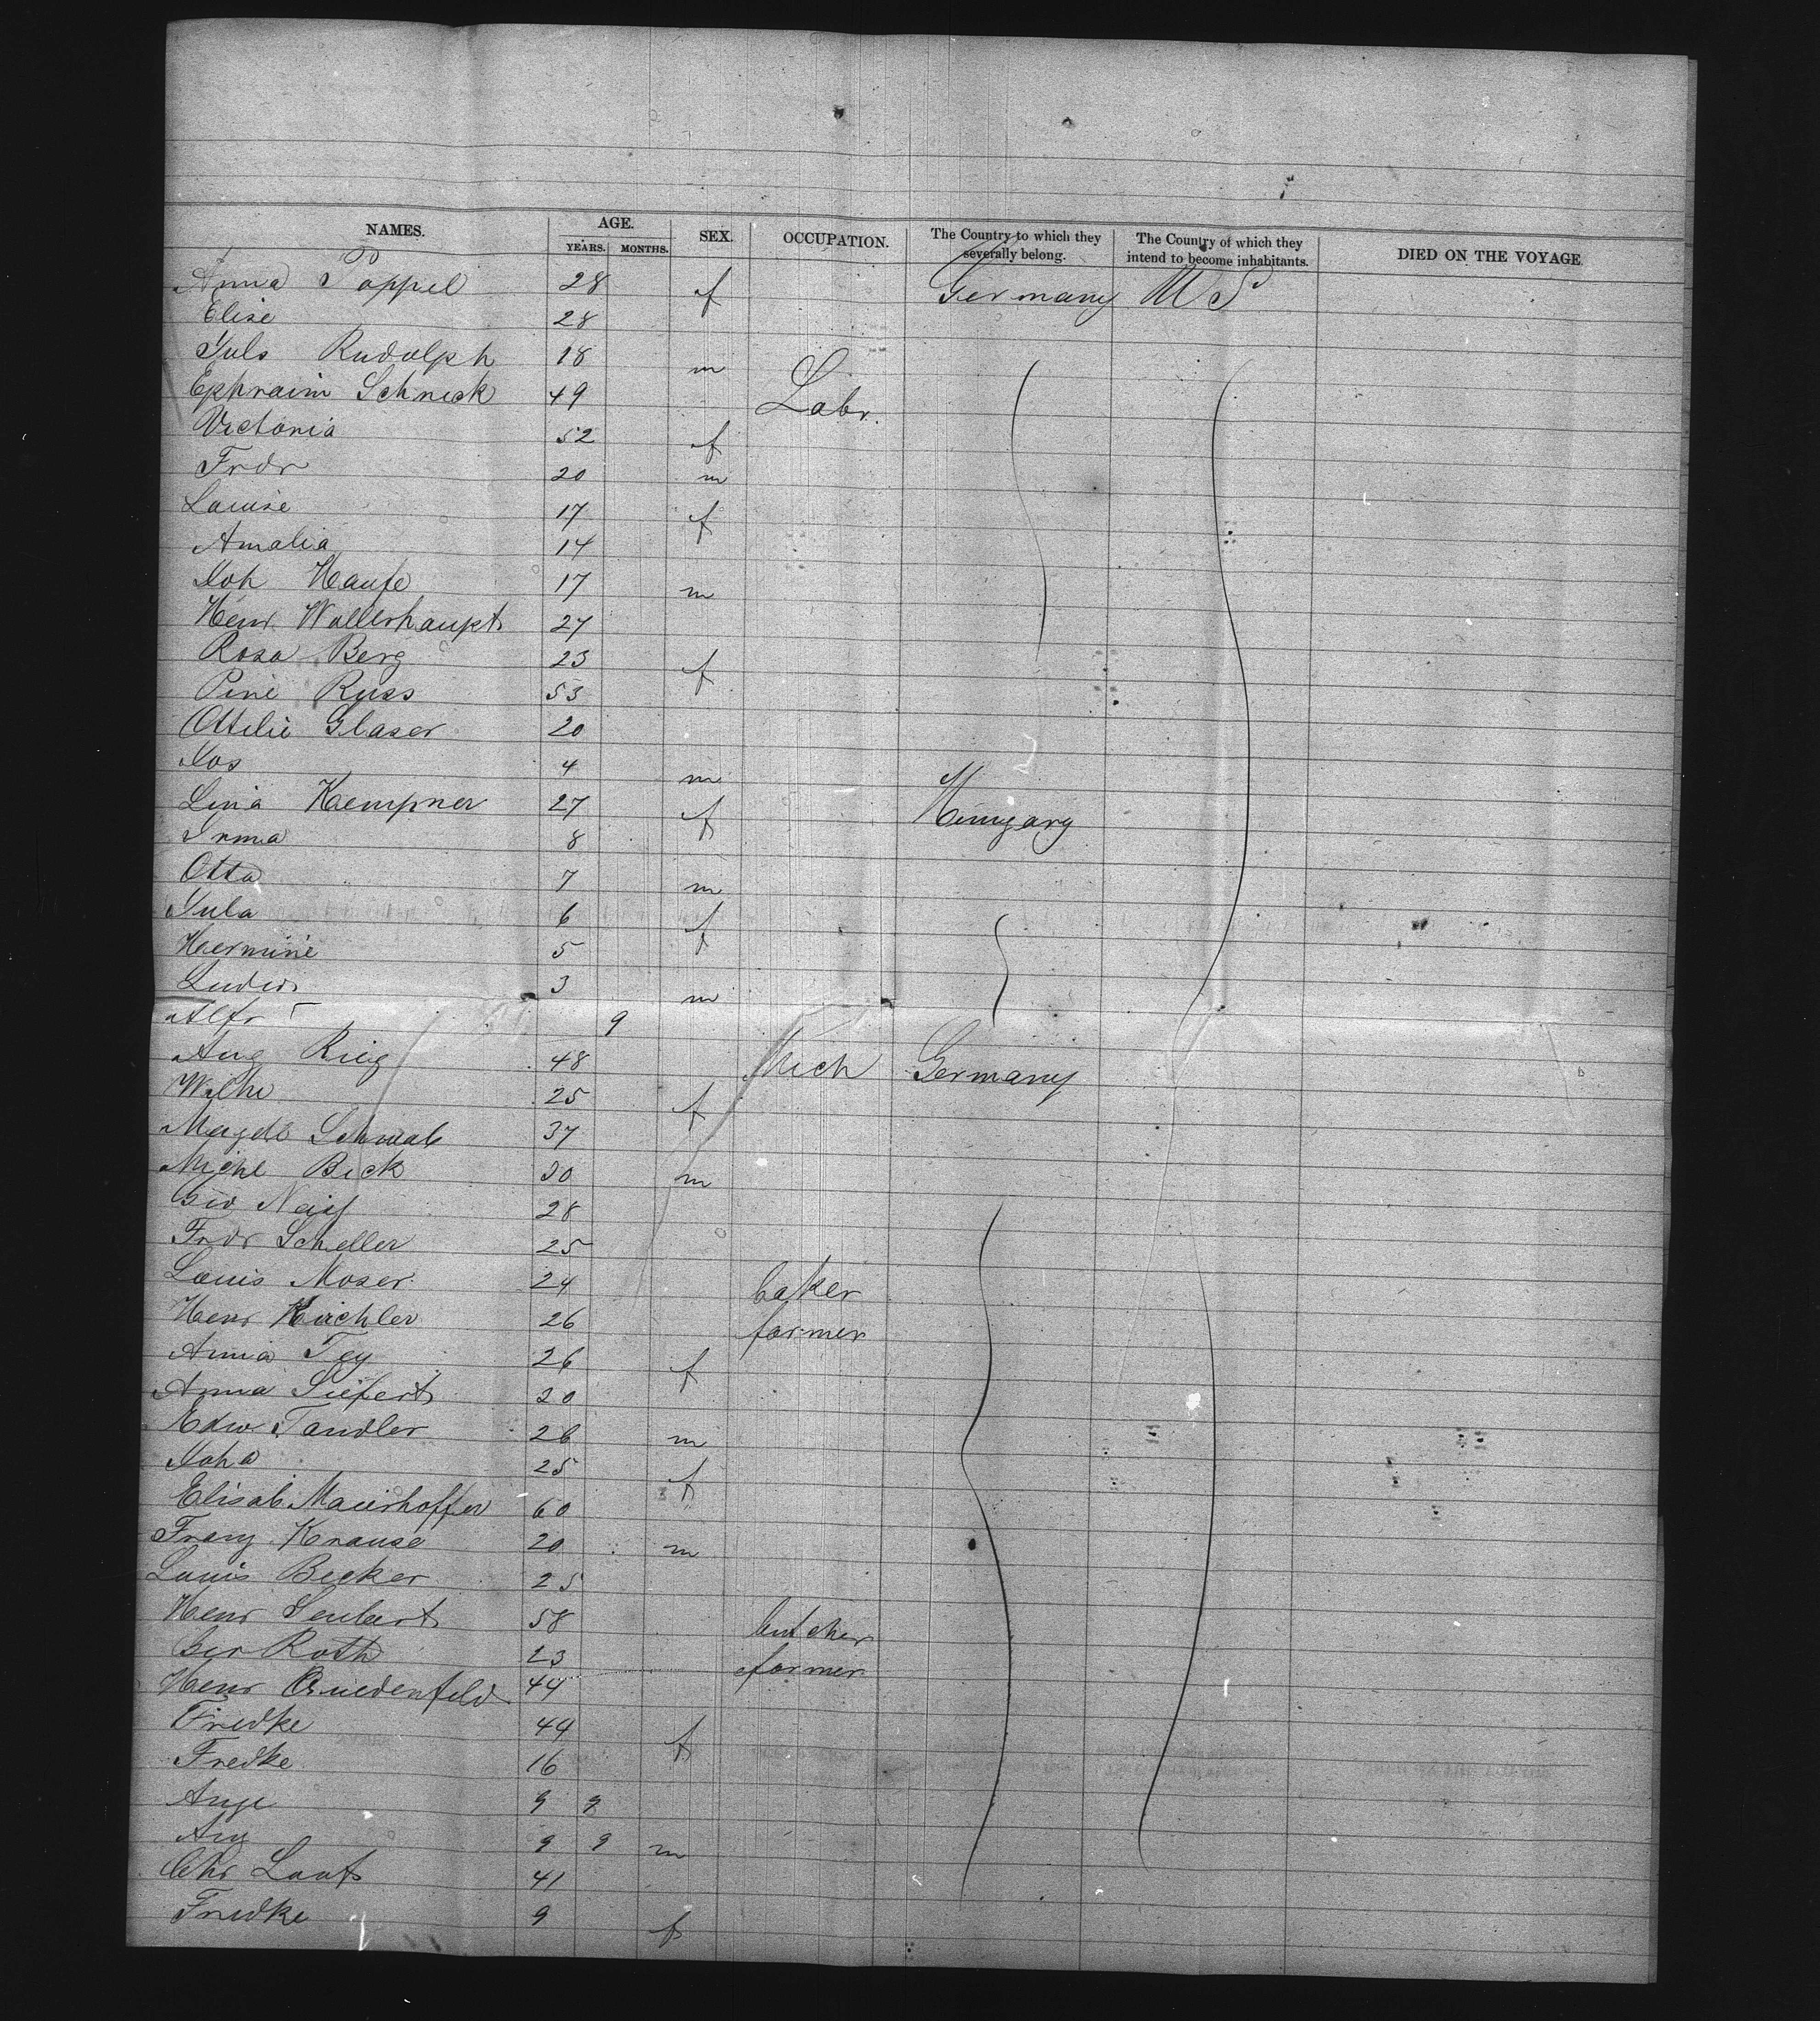 NAMES. AGE. SEX. OCCUPATION. The Country to which they severally belong. The Country of which they intend to become inhabitants. DIED ON THE VOYAGE
YEARS. MONTHS.
Anna Poppel 28 f Germany U S
Elise 28
Juls Rudolph 18 m
Ephraim Schneck 49 Labr.
Victoria 52 f
Frdr 20 m
Louise 17 f
Amalia 14
Joh Haufe 17 m
Henr Wollerhaupt 27
Rosa Berg 23 f
Pine Russ 53
Ottilie Glaser 20
Jos 4 m
Lina Kempner 27 f Hungary
Irma 8
Otto 7 m
Jula 6 f
Hermine 5 f
Ludw 3 m
Alfr 9
Aug Rieg 48 Mech Germany
Wilhe 25 f
Magdl Schwab 37
Michl Beck 30 m
Geo 28
Frdr Scheller 25
Louis Moser 24 baker
Henr Küchler 26 farmer
Anna Fey 26 f
Anna Siefert 20
Edw Tandler 26 m
Joha 25 f
Elisab. Maierhoffer 60
Franz Krause 20 m
Louis Becker 25
Henr Seubert 58 butcher
Geo Roth 23 farmer
Henr 44
Friedke 44 f
Fredke 16
Auge 9 9
Aug 9 9 m
Chr 41
Friedke 9 f